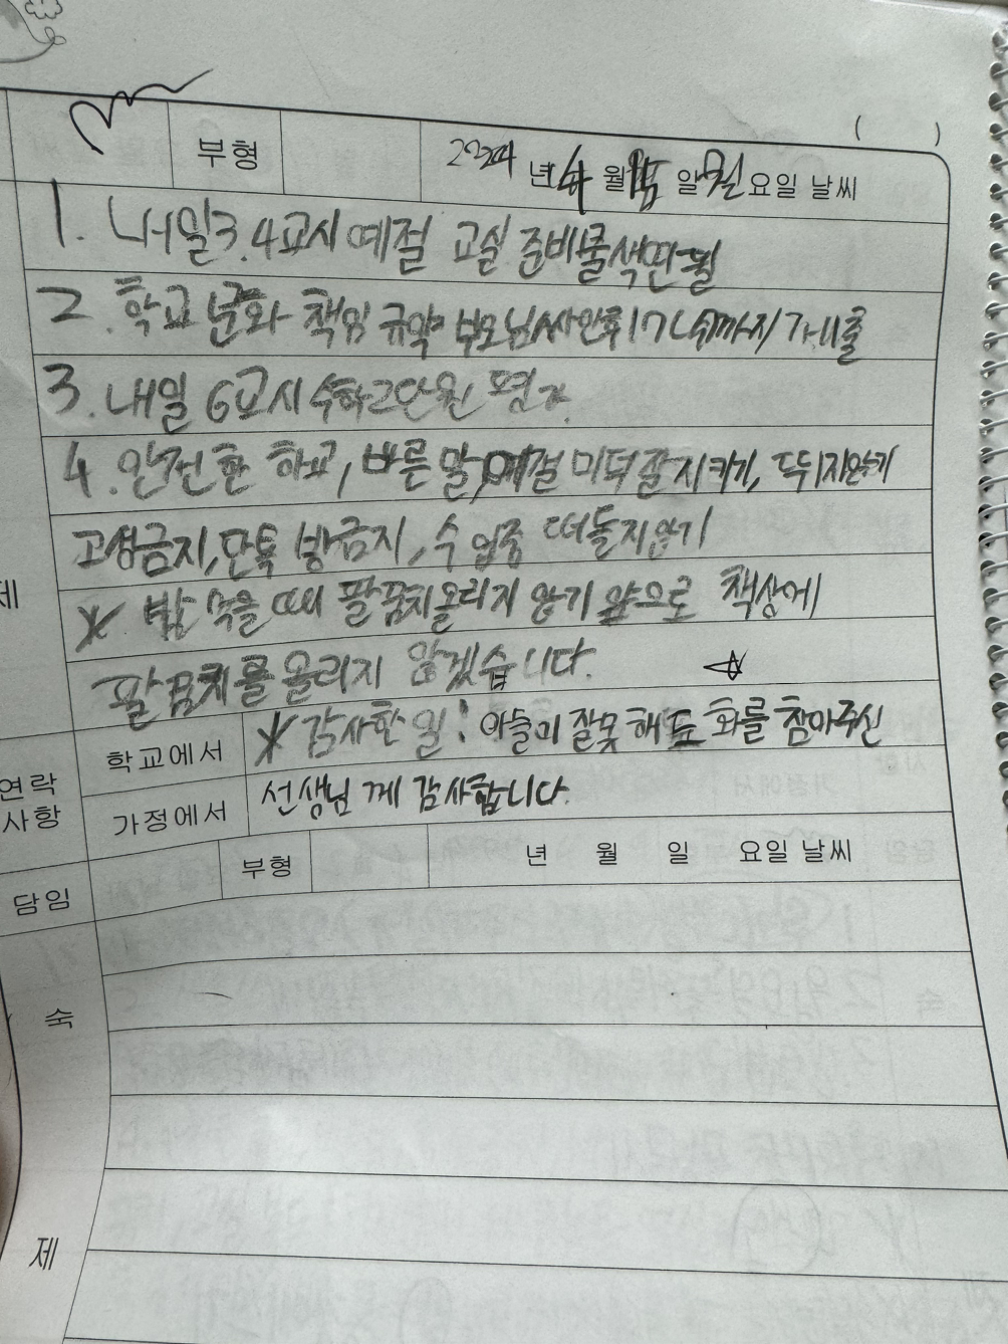 ( )
부형 2024 년 4 월 15 일 월 요일 날씨
1. 내일 3.4교시 예절 교실 준비물 색연필
2. 학교 문화 책임 규약 부모님 싸인후 17 까지 제출
3. 내일 6교시 수학 2단원 평가
4. 안전한 하교, 바른 말, 예절 미덕 잘 지키기, 뛰지않기
고성금지, 금지, 수업중 떠들지않기
※ 밥 먹을 때 팔꿈치올리지 않기 앞으로 책상에
팔꿈치를 올리지 않겠습니다. ☆
제
연락
사항
학교에서 ※감사한 일: 아들이 잘못해도 화를 참아주신
가정에서 선생님 께 감사합니다.
담임 부형 년 월 일 요일 날씨
숙
제